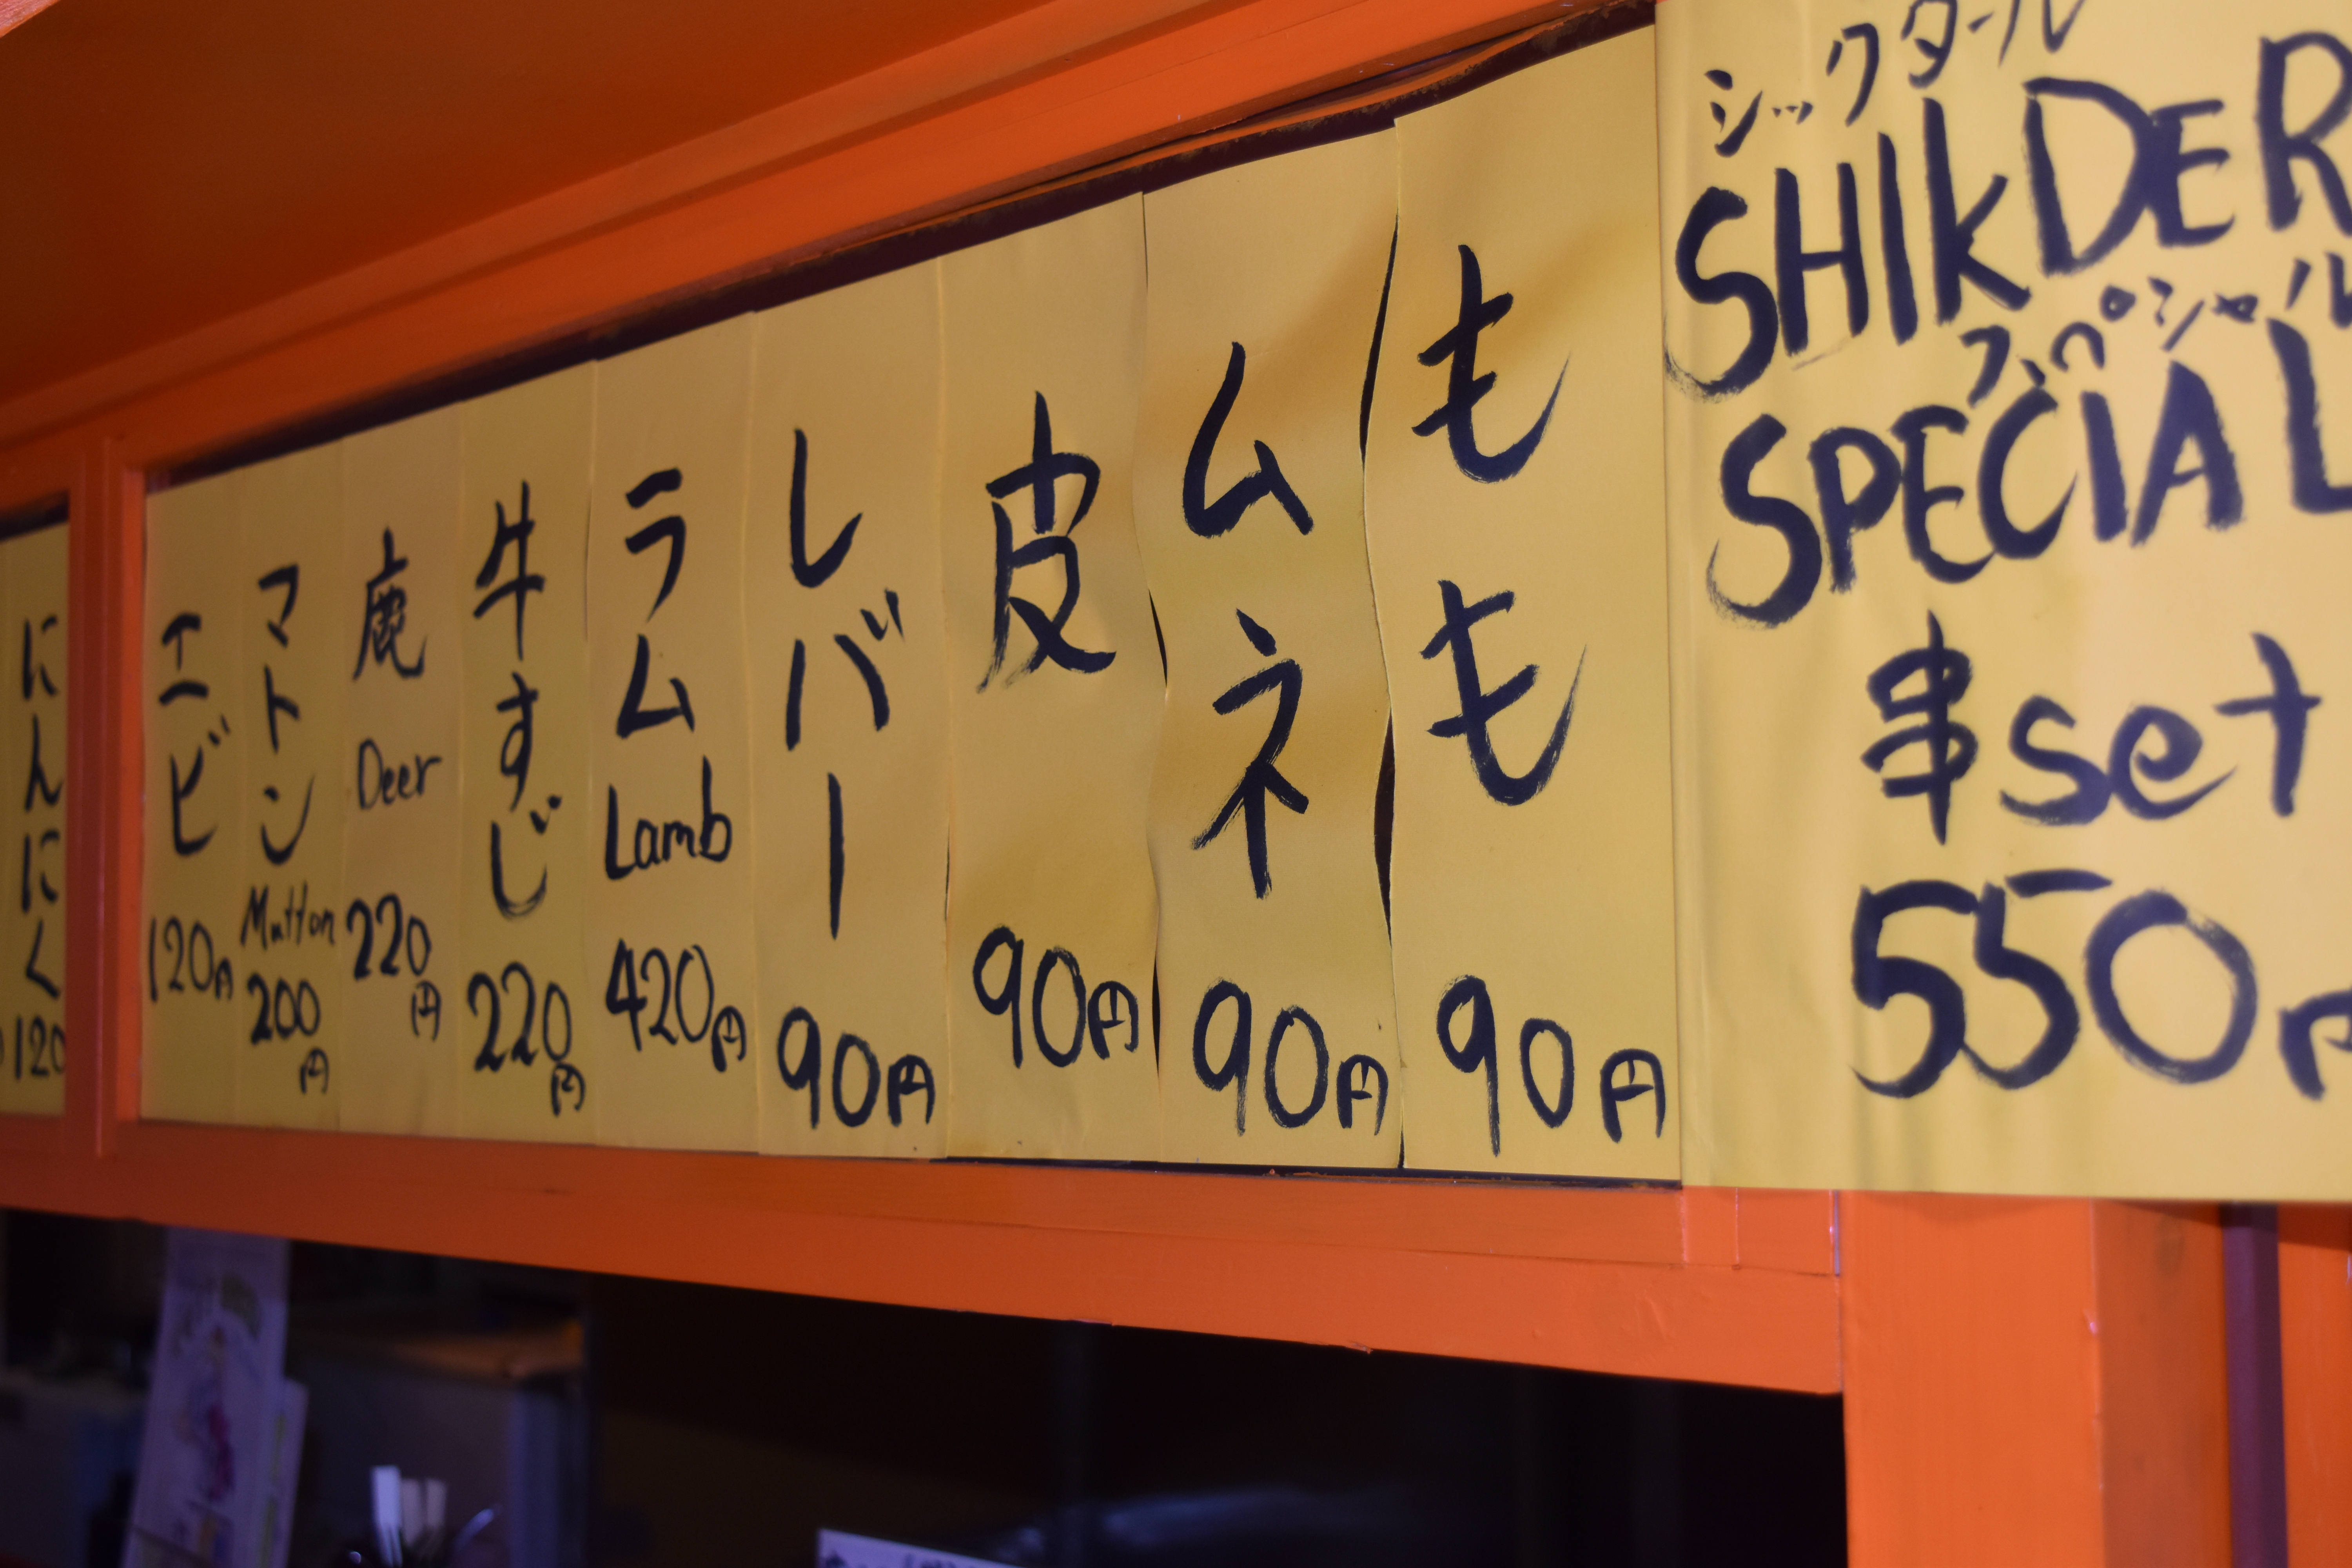 シックダール
SHIKDER
スペシャル
SPECIAL
串set
550円
もも
90円
ムネ
90円
皮
90円
レバー
90円
ラム
Lamb
420円
牛すじ
220円
鹿
Deer
220円
マトン
Mutton
200円
エビ
120円
にんにく
120